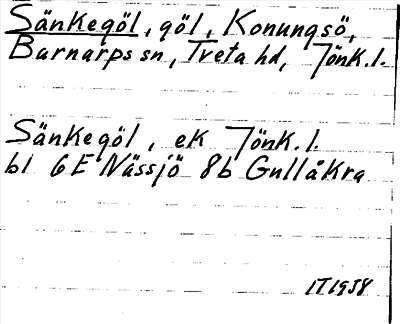 Sänkegöl, göl, Konungsö,
Barnarps sn, Tveta hd, Jönk.l.
Sänkegöl, ek Jönk.l.
bl 6E Nässjö 8b Gullåkra
IT1958